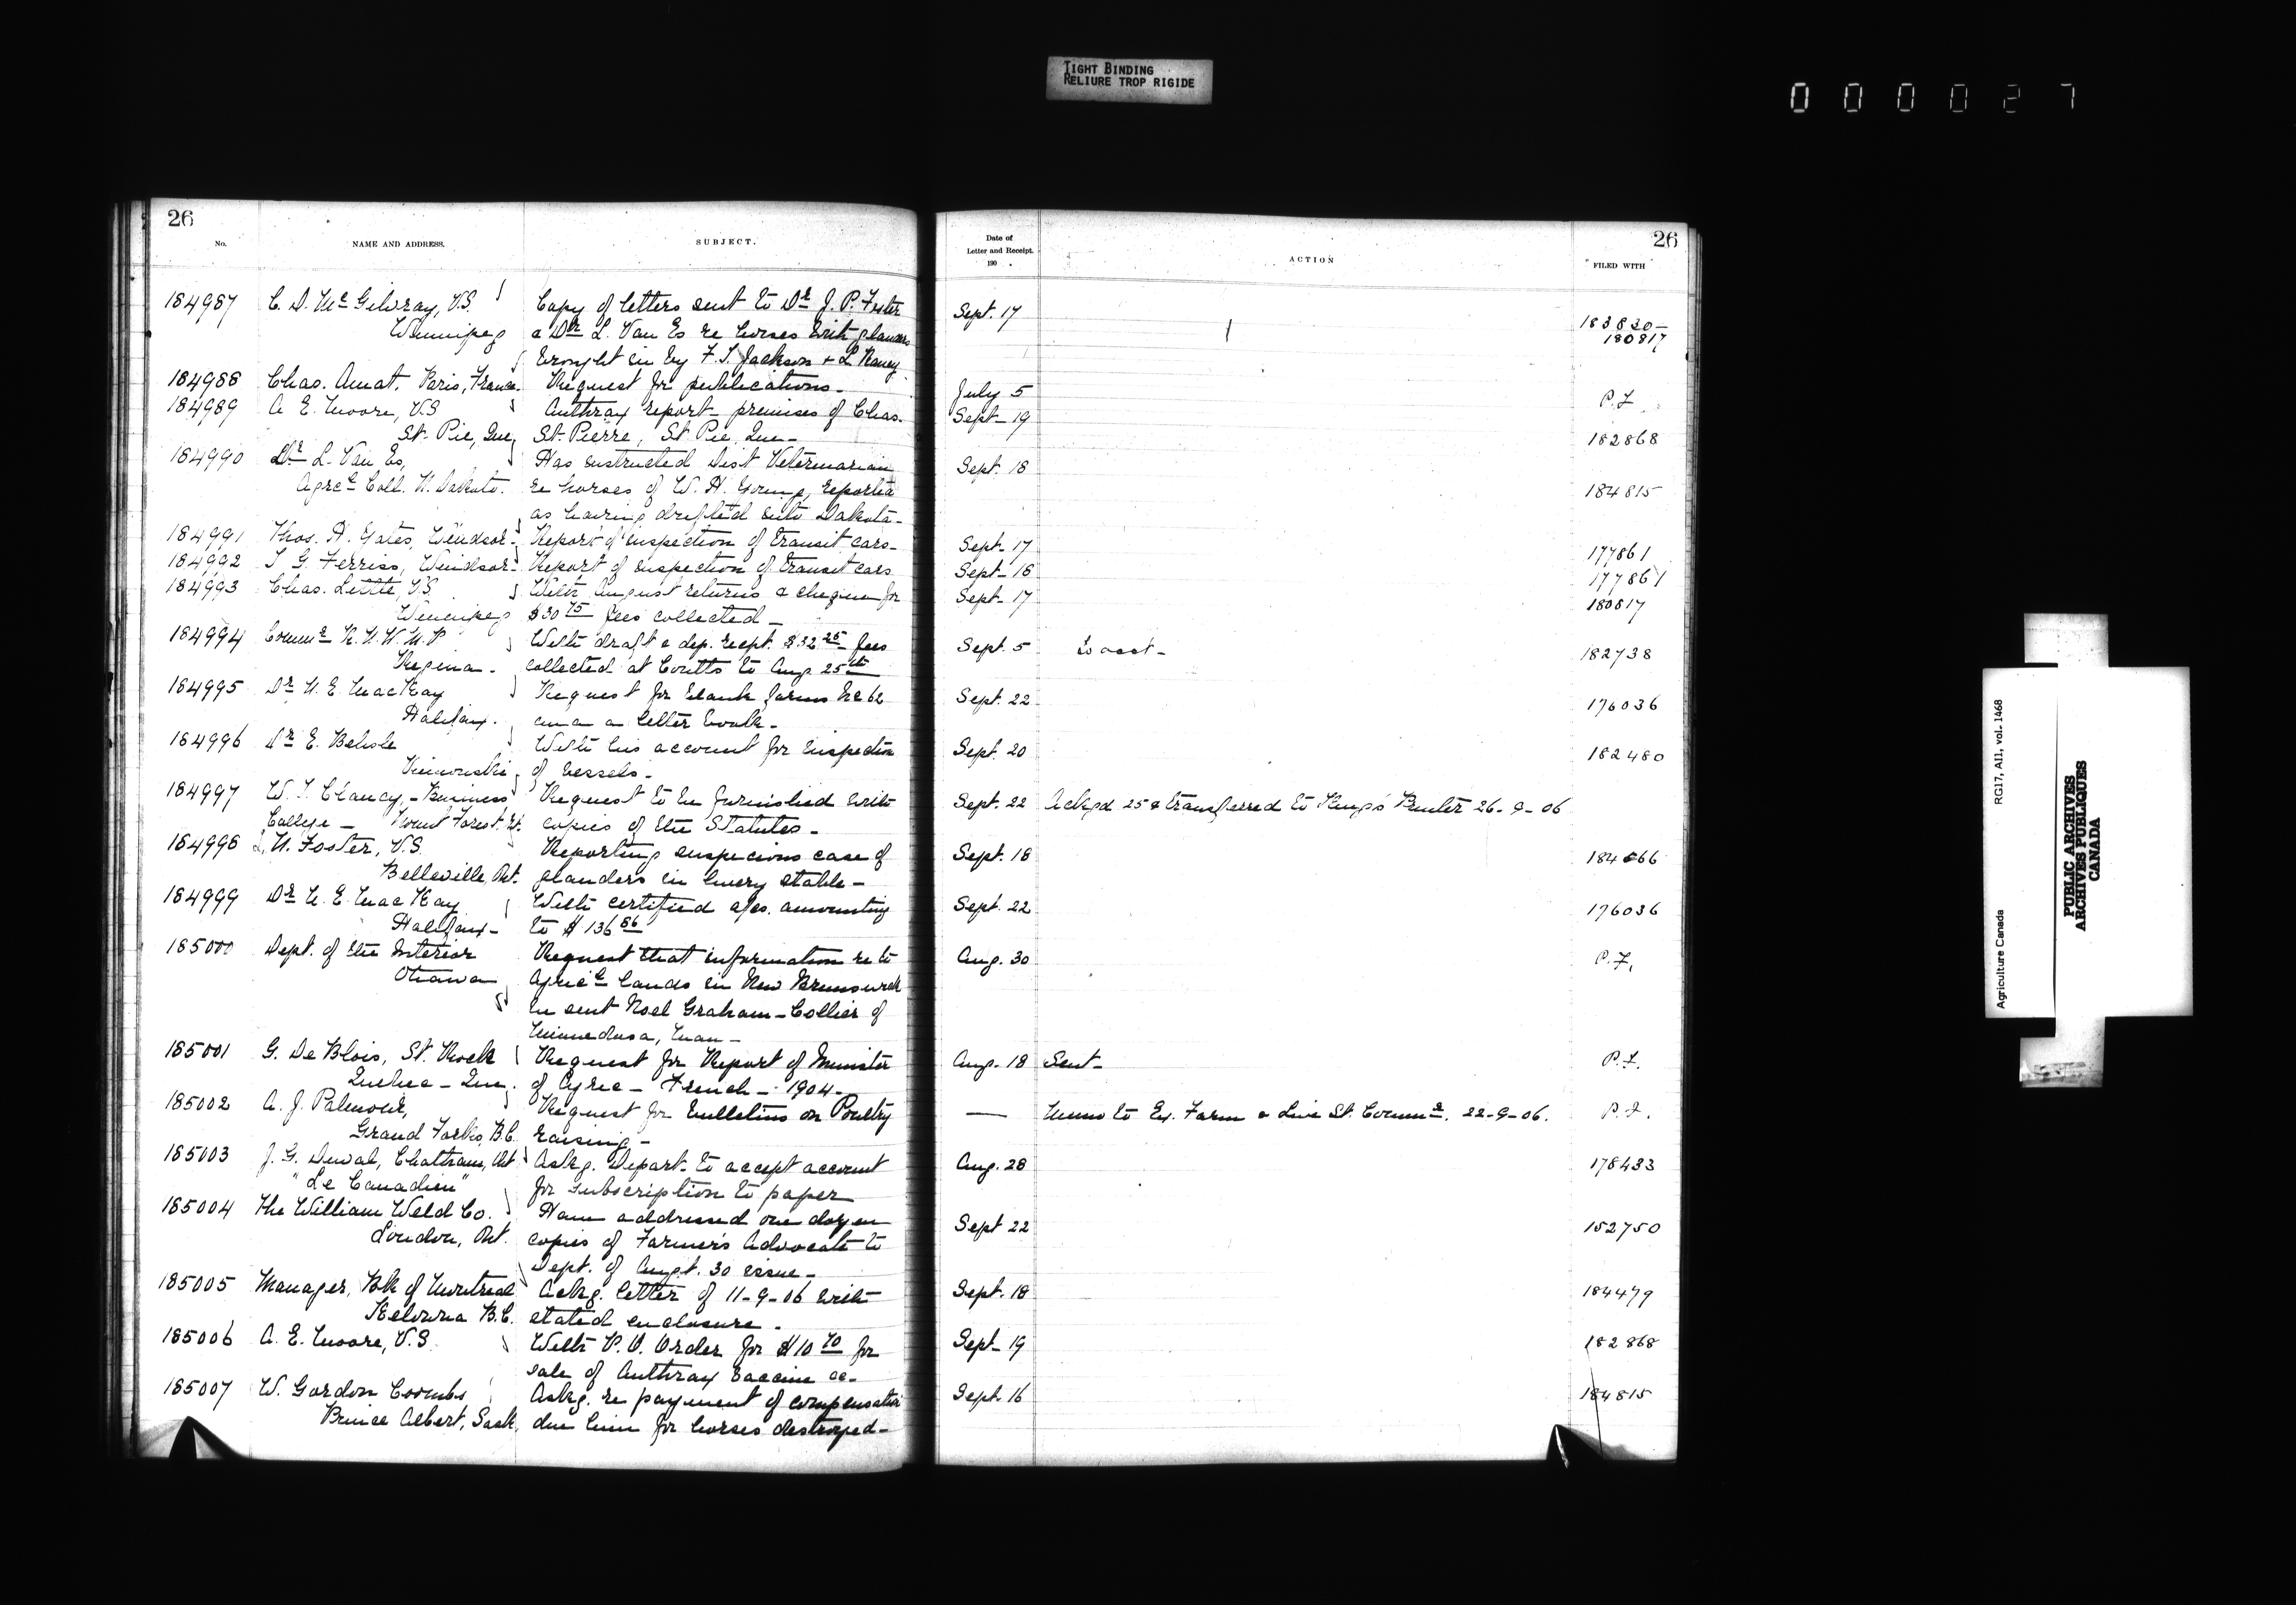 TIGHT BINDING
RELIURE TROP RIGIDE
000027
26
No.
NAME AND ADDRESS.
SUBJECT.
184987 C. D. McGilvray, V.S. Copy of letters sent to Dr J. P. Foster
Winnipeg & Dr L. Van Es re horses with glanders
brought in by F. S. Jackson + L
184988 Chas. Amat, Paris, France. Request for publications.
184989 A. E. Moore, V.S Anthrax report - premises of Chas.
St. Pie, Que St. Pierre, St Pie, Que -
184990 Dr L. Van Es, Has instructed Dist Veterinarian
Agrcl Coll. N. Dakota. re horses of W. H. Young, reported
as having drifted into Dakota -
184991 Thos. H. Gates, Windsor - Report of inspection of transit cars -
184992 J. G. Ferriss, Windsor - Report of inspection of transit cars
184993 Chas. Little, V.S. With August returns & cheque for
Winnipeg $30 75 fees collected -
184994 Commr R. N. W. M. P With draft & dep. recpt. $32 25 fees
Regina - collected at Coutts to Aug 25th
184995 Dr N. E. MacKay Request for blank forms No 62
Halifax. and a letter book -
184996 Dr E. Belisle With his account for inspection
Rimouski of vessels -
184997 W. J. Clancy, - Business Request to be furnished with
College - Mount Forest, Ont. copies of the Statutes -
184998 N. Foster, V.S. Reporting suspicious case of
Belleville, Ont. glanders in livery stable -
184999 Dr N. E. MacKay With certified a/cs. amounting
Halifax - to $136 86
185000 Dept. of the Interior Request that information re to
Ottawa Agricl lands in New Brunswick
be sent Noel Graham-Collier of
Minnedosa, Man -
185001 G. De Blois, St. Roch Request for Report of Minister
Quebec - Que. of Agric - French - 1904 -
185002 A. J. Request for Bulletins on Poultry
Grand Forks, B.C. raising -
185003 J. G. Duval, Chatham, Ont Askg. Depart. to accept account
"Le Canadien" for subscription to paper
185004 The William Weld Co. Have addressed one dozen
London, Ont. copies of Farmer's Advocate to
Dept. of Augt. 30 issue -
185005 Manager, Bk of Montreal Ackg. letter of 11-9-06 with
Kelowna B.C. stated enclosure.
185006 A. E. Moore, V.S With P. O. Order for $10 70 for
sale of Anthrax Vaccine &c -
185007 W. Gordon Coombs Askg. re payment of compensation
Prince Albert, Sask, due him for horses destroyed -
26
Date of
Letter and Receipt.
190 .
ACTION
FILED WITH
Sept. 17 183820 -
180817
July 5 P.F.
Sept - 19 182868
Sept. 18 184815
Sept - 17 177861
Sept - 18 177861
Sept - 17 180817
Sept. 5 To acct - 182738
Sept. 22 176036
Sept. 20 182480
Sept. 22 Ackgd 25 & transferred to King's Printer 26-9-06
Sept. 18 184866
Sept. 22 176036
Aug. 30 P.F.
Aug. 18 Sent - P.F.
— Memo to Ex. Farm & Live St. Commr. 22-9-06. P.F.
Aug. 28 178433
Sept 22 152750
Sept. 18 184479
Sept - 19 182868
Sept. 16 184815
Agriculture Canada RG17, AII, vol. 1468
PUBLIC ARCHIVES
ARCHIVES PUBLIQUES
CANADA